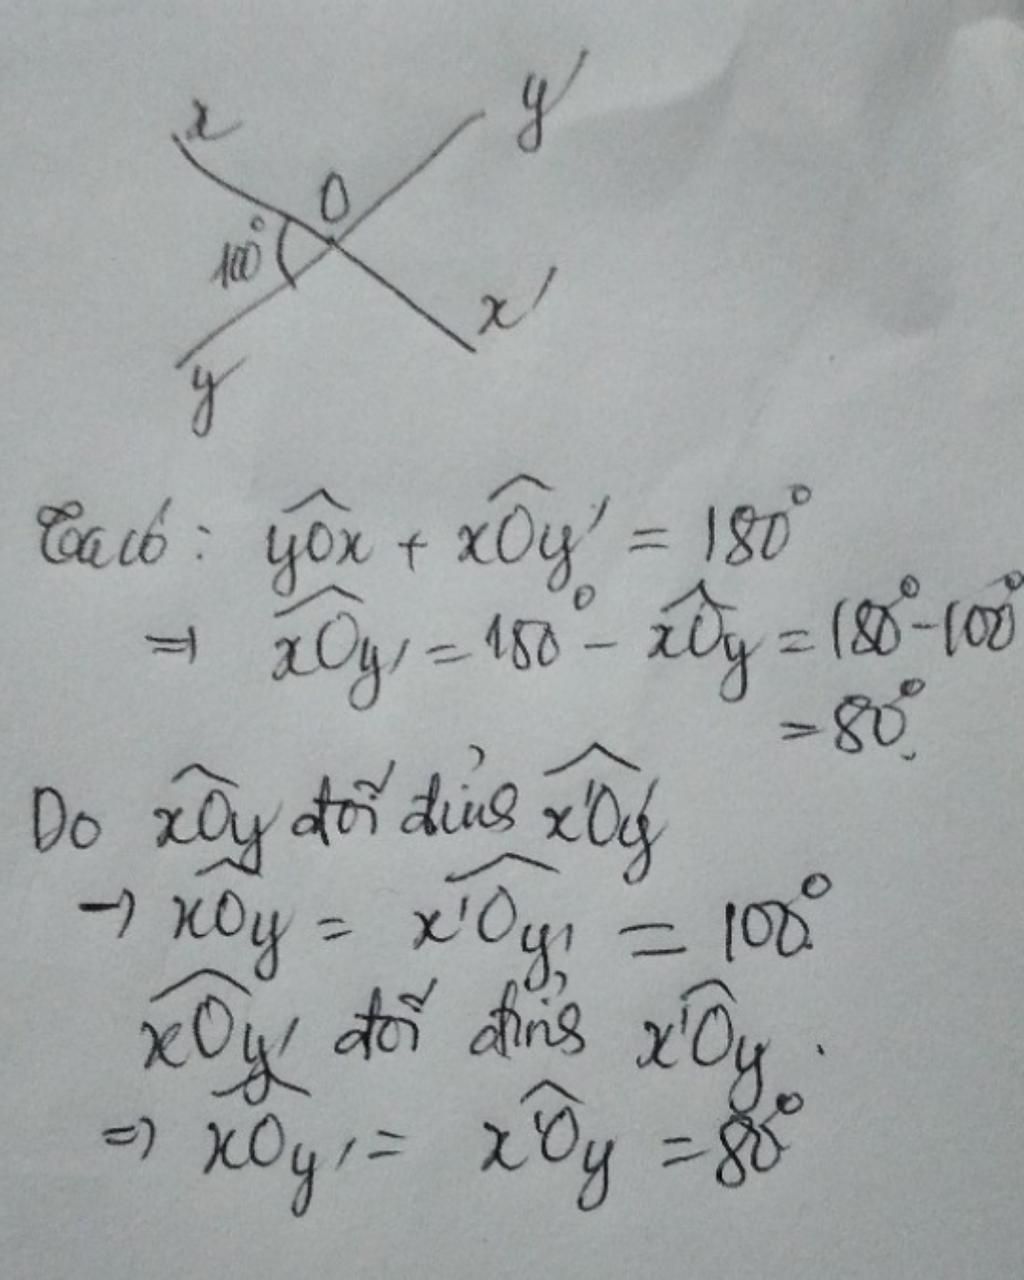 x
y'
O
100°
x'
y
Ta có: yOx + xOy' = 180°
=> xOy' = 180° - xOy = 180° - 100°
= 80°.
Do xOy đối đỉnh x'Oy'
→ xOy = x'Oy' = 100°
xOy' đối đỉnh x'Oy.
=> xOy' = x'Oy = 80°